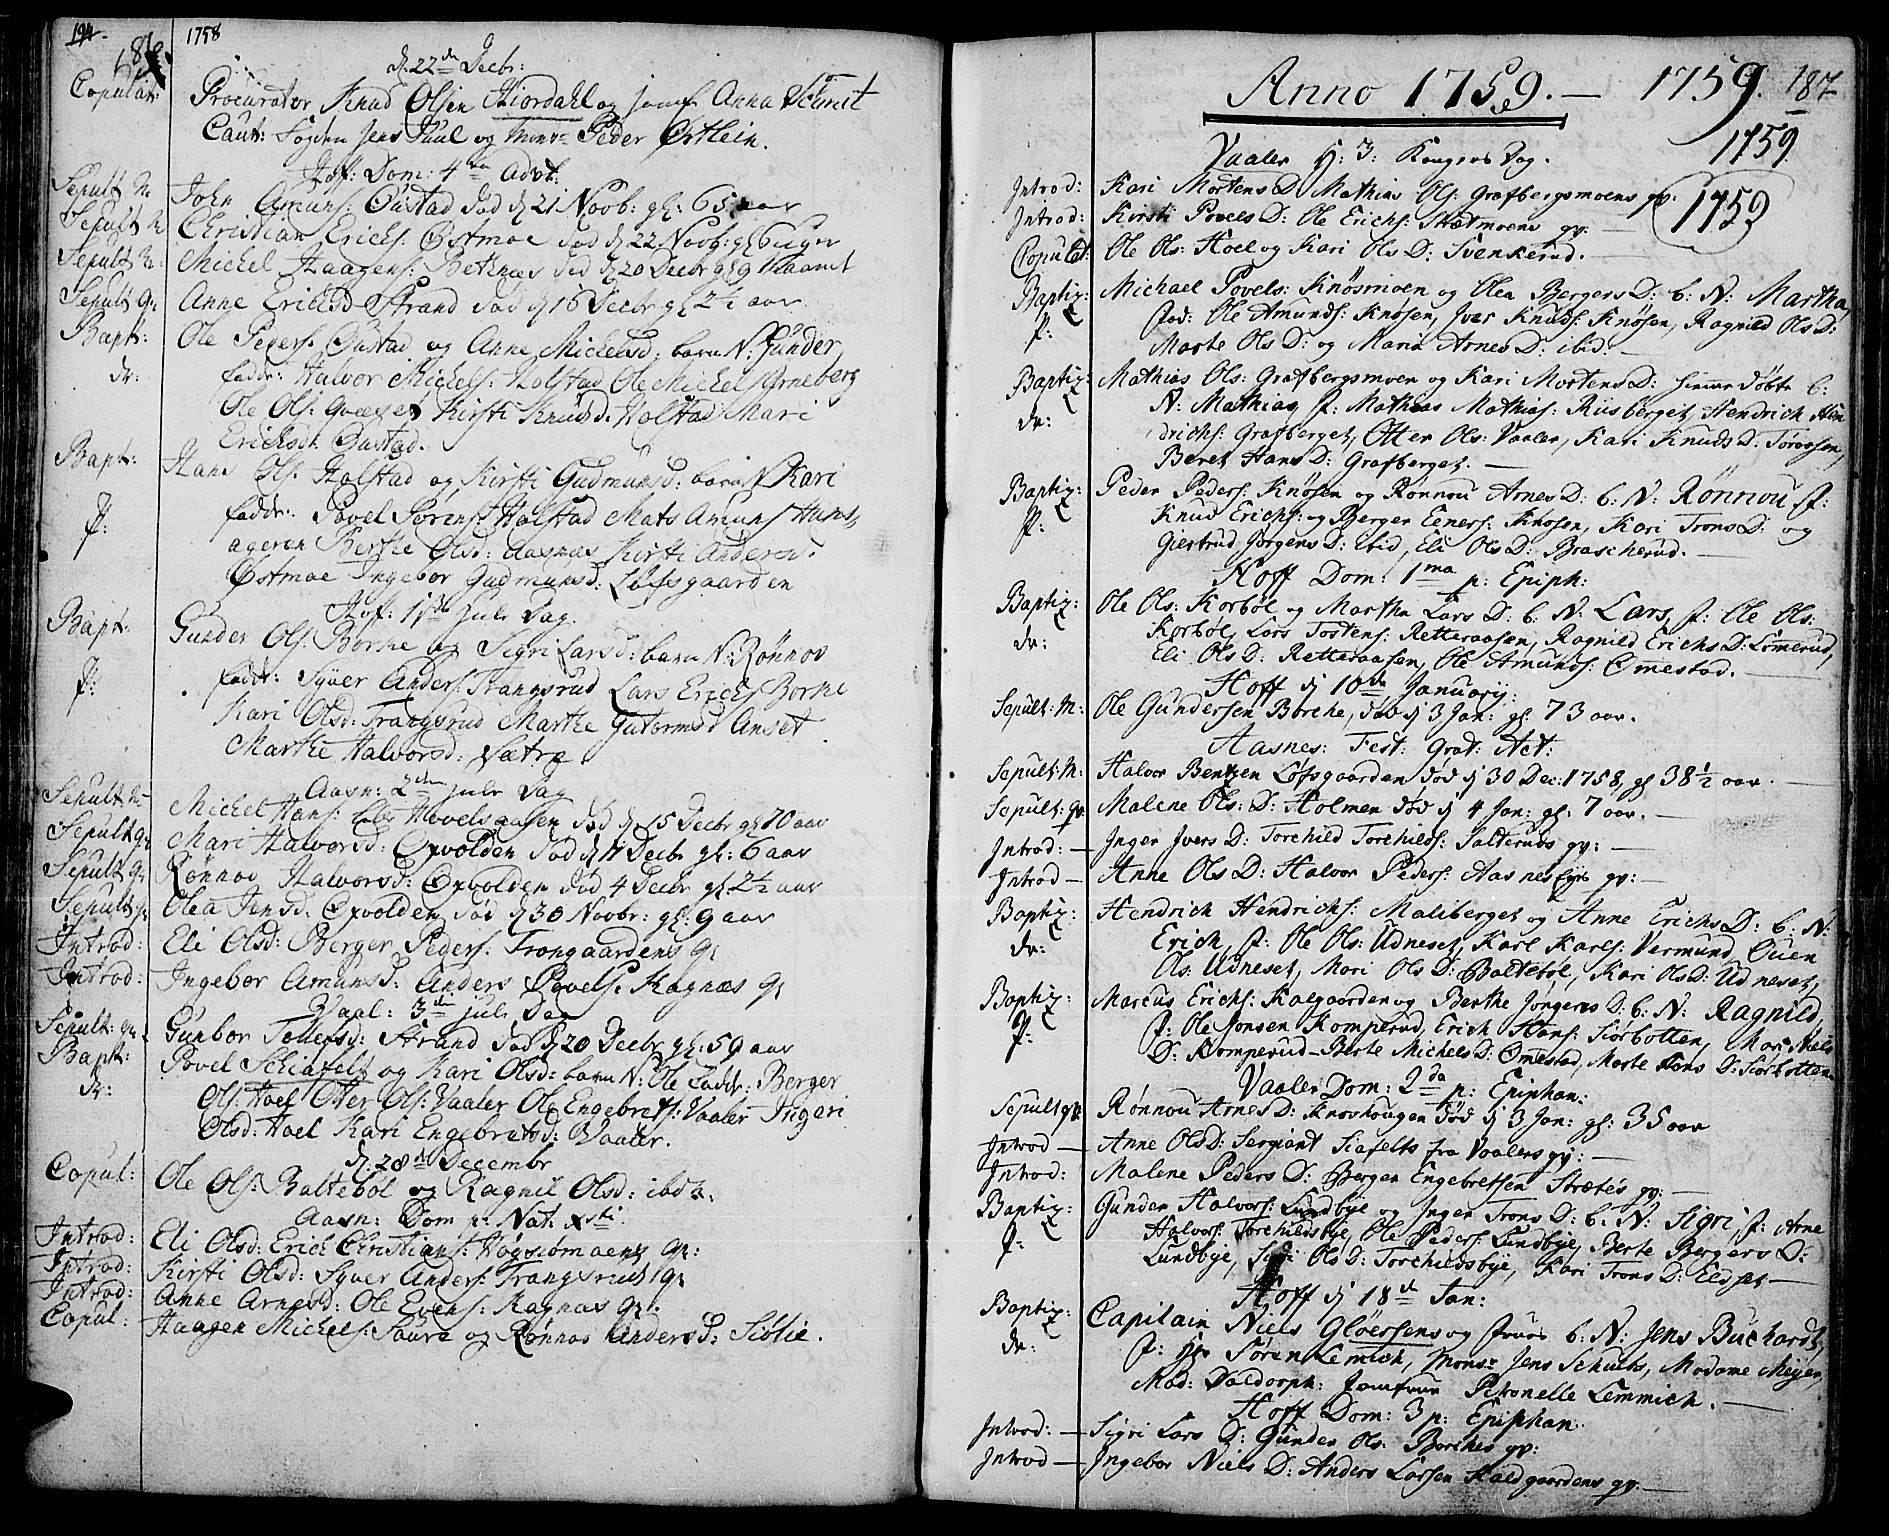 194. 1758
186
d. 22de Decbr:
Copulat: Procurator Knud Olsen Hiordahl og Jomf Anna Schmit
Caut: Fogden Jens Juul og Monsr Peder Østlein.
Hof: Dom: 4ta Advt:
Sepult M: John Amuns: Gustad død d 21 Novb: gl: 65 aar
Sepult M Christian Erichs: Østmoe død d 22 Novb: gl 6 uger
Sepult M: Michel Haagens: Beknæs død d 20 Decbr gl 9 Maanet
Sepult Q: Anne Ericksd Strand død d 16 Decbr gl 2½ aar
Bapt: Ole Peders: Gustad og Anne Michelsd: barn N: Gunder,
dr: faddr: Halvor Michels: Holstad Ole Michels Arneberg
Ole Ols: Kirsti Knudsd: Holstad Mari
Ericksdr Gustad.
Bapt: Hans Ols: Halstad og Kirsti Gudmunsd: barn N Kari
P: faddr: Povel Sørens: Halstad Mats Amuns
ageren Berthe Olsd: Aasnæs Kirsti Anders:
Østmoe Ingebor Gudmunsd: Løfsgaarden
Hof: 1ste Jule Dag.
Bapt: Gunder Ols: Borke og Sigri Larsd: barn N: Rønnov
P: faddr: Syver Anders: Trangsrud Lars Ericks Borke
Kari Olsd: Trangsrud Marthe Gutormsd Anset
Marthe Halvorsd: Sætre.
Aasn: 2den Jule Dag
Sepult M: Michel Hans: Hovelsaasen død d 15 Decbr gl 70 aar
Sepult Q: Mari Halvorsd: Opvolden død d 11 Decbr gl: 6 aar
Sepult Q: Rønnov Halvorsd: Opvolden død 4 Decbr gl 2½ aar
Sepult Q: Olea Jensd: Opvolden død d 30 Novbr: gl: 9 aar
Introd: Eli Olsd: Berger Peders: Trongaardens Q:
Introd: Ingebor Amunsd: Anders Povels: Kagnæs Q:
Vaal: 3die Jule Dag
Sepult: Qv: Gunbor Tollefsd: Strand død d 20 Decbr gl: 59 aar
Bapt: Povel Schiafelt og Kari Olsd: barn N: Ole Faddr: Berger
dr: Ols: Hoel Otter Ols: Vaaler Ole Engebrets: Vaaler Ingeri
Olsd: Hoel Kari Engebretsd: Vaaler.
d. 28de Decembr
Copul: Ole Ols: Baltebøl og Ragnil Olsd: ibd:
Aasn: Dom p: Nat: Xsti
Introd: Eli Olsd: Erich Christians: Q:
Introd: Kirsti Olsd: Syver Anders: Trangsruds Q:
Introd: Anne Arnesd: Ole Evens: Kagnæs Q:
Copul: Haagen Michels: Saure og Rønnov Andersd: Siølie.
Anno 1759. — 1759. 187
1759
Vaaler H: 3: Konger Dag.
1759
Introd: Kari Mortens D: Mathias Ols: Grafbergsmoens qv:
Introd: Kirsti Povels D: Ole Erichs: Strætmoens qv: —
Copulat: Ole Ols: Hoel og Kari Ols D: Svenkerud. —
Baptiz: Michael Povels: Knøsmoen og Olea Bergers D: b: N: Martha,
P: fad: Ole Amunds: Knøsen, Iver Knuds: Knøsen, Ragnild Ols D:
Marte Ols D: og Maria Arnes D: ibid: —
Baptiz: Mathias Ols: Grafbergsmoen og Kari Mortens D: hiemmedøbte b:
dr: N: Mathias, f: Mathias Mathias: Riisberget, Hendrich Hen
drichs: Grafberget, Otter Ols: Vaaler, Kari Knuds D: Toraasen,
Beret Hans D: Grafberget. —
Baptiz: Peder Peders: Knøsen og Rønnou Arnes D: b: N: Rønnou f:
P: Knud Erichs: og Berger Eeners: Knøsen, Kari Trons D: og
Giertrud Jørgens D: ibid, Eli Ols D: Brascherud. —
Hoff Dom: 1ma p: Epiph:
Baptiz: Ole Ols: Korbøl og Martha Lars D: b: N: Lars, f: Ole Ols:
dr: Korbøl, Lars Tostens: Retteraasen, Ragnild Erichs D: Lømerud,
Eli Ols D: Retteraasen, Ole Amunds: Omestad. —
Hoff d 10de Januarij:
Sepult: M: Ole Gundersen Borche, død d 3 Jan: gl: 73 aar.
Aasnes: Fest: Grat: Act:
Sepult: M: Halvor Bentzen Løfsgaarden død d 30 Dec: 1758, gl 38½ aar.
Sepult: qv: Malene Ols: D: Holmen død d 4 Jan: gl: 7 aar. —
Introd: — Inger Ivers D: Torchild Torchilds: Salteruds qv: —
Introd — Anne Ols D: Halvor Peders: Aasnes Eye qv: —
Baptiz: Hendrich Hendrichs: Maliberget og Anne Erichs D: b: N:
dr: Erich, f: Ole Ols: Udneset, Karl Karls: Vermund, Ouen
Ols: Udneset, Mari Ols D: Baltebøl, Kari Ols D: Udneset,
Baptiz: Marcus Erichs: Kalgaarden og Berthe Jørgens D: b: N: Ragnild,
P: f: Ole Jonsen Komperud, Erich Hans: Siørbotten, Mari Niels
D: Komperud — Berte Michels D: Omestad, Marte Hans D: Siørbotten
Vaaler Dom: 2da p: Epiphan:
Sepult qv: Rønnou Arnes D: Knovhougen død d 3 Jan: gl: 35 aar
Introd — Anne Ols D: Sergiant Siafelts fra Vaalers qv: —
Introd: Malene Peders D: Berger Engebretsen Strætes qv: —
Baptiz: Gunder Halvors: Lundbye og Inger Trons D: b: N: Sigri, f: Arne
P: Halvors: Torchildsbye, Ole Peders: Lundbye, Berte Bergers D:
Lundbye, Ols D: Torchildsbye, Kari Trons D: Eedset —
Hoff d 18de Jan:
Baptiz: Capitain Niels Gløersens og frues b: N: Jens Buchardt,
dr: f: Hr Søren Lemich, Monsr Jens Schults, Madame Meyer,
Mad: Valdorph: Jomfrue Petronelle Lemmich. —
Hoff Dom: 3 p: Epiphan:
Introd: — Sigri Lars D: Gunder Ols: Borches qv:
Introd — Ingebor Niels D: Anders Larsen Kaldgaardens qv. —